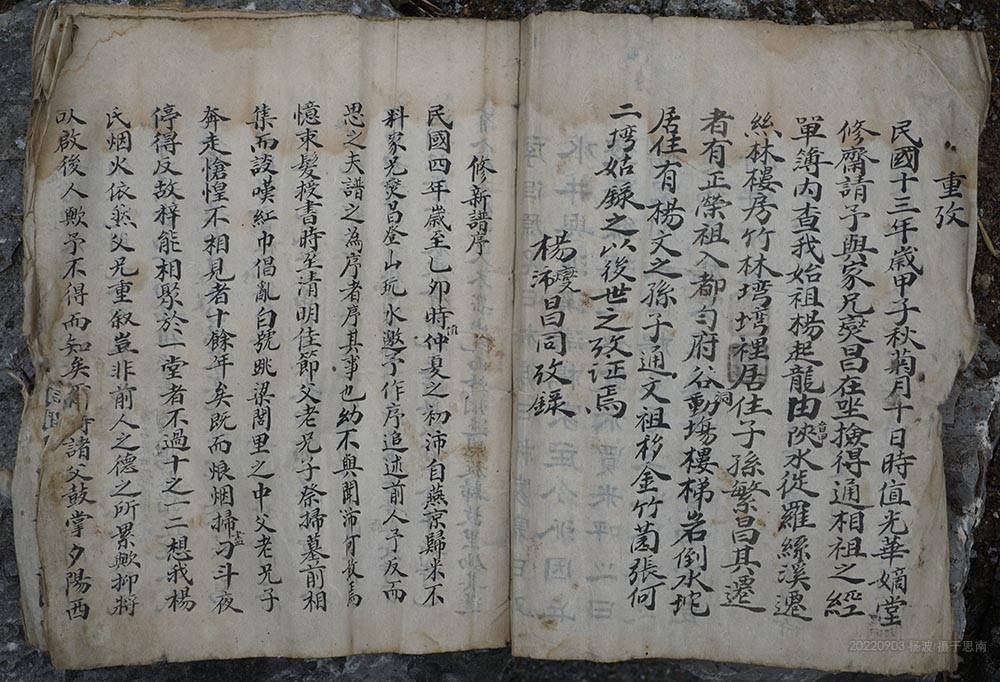 重攷
民國十三年歲甲子秋菊月十日時值光華嫡堂
修齋請予與家兄爕昌在坐撿得通相祖之經
單簿内查我始祖楊起龍由陝水徙羅絲溪遷
絲林樓房竹林塆塆裡居住子孫繁昌其遷
者有正榮祖入都勻府谷洞塲樓梯岩倒水坨
居住有楊文之孫子通文祖移金竹園張何
二塆姑録之以後世之攷证焉
楊爕沛昌同攷録
修新譜序
民國四年歲至乙卯時值仲夏之初沛自燕京歸来不
料家兄爕昌登山玩水邀予作序追述前人予反而
思之夫譜之為序者序其事也幼不與聞沛何敢焉
憶束髮授書時至清明佳節父老兄子祭掃墓前相
集而談嘆紅巾倡亂白號跳梁閭里之中父老兄子
奔走愴惶不相見者十餘年矣既而烺烟掃盡刁斗夜
停得反故梓能相聚於一堂者不過十之一二想我楊
氏烟火依然父兄重叙豈非前人之德之所累歟抑將
以啟後人歟予不得而知矣 時諸父鼓掌夕陽西
20220903 杨波 摄于思南